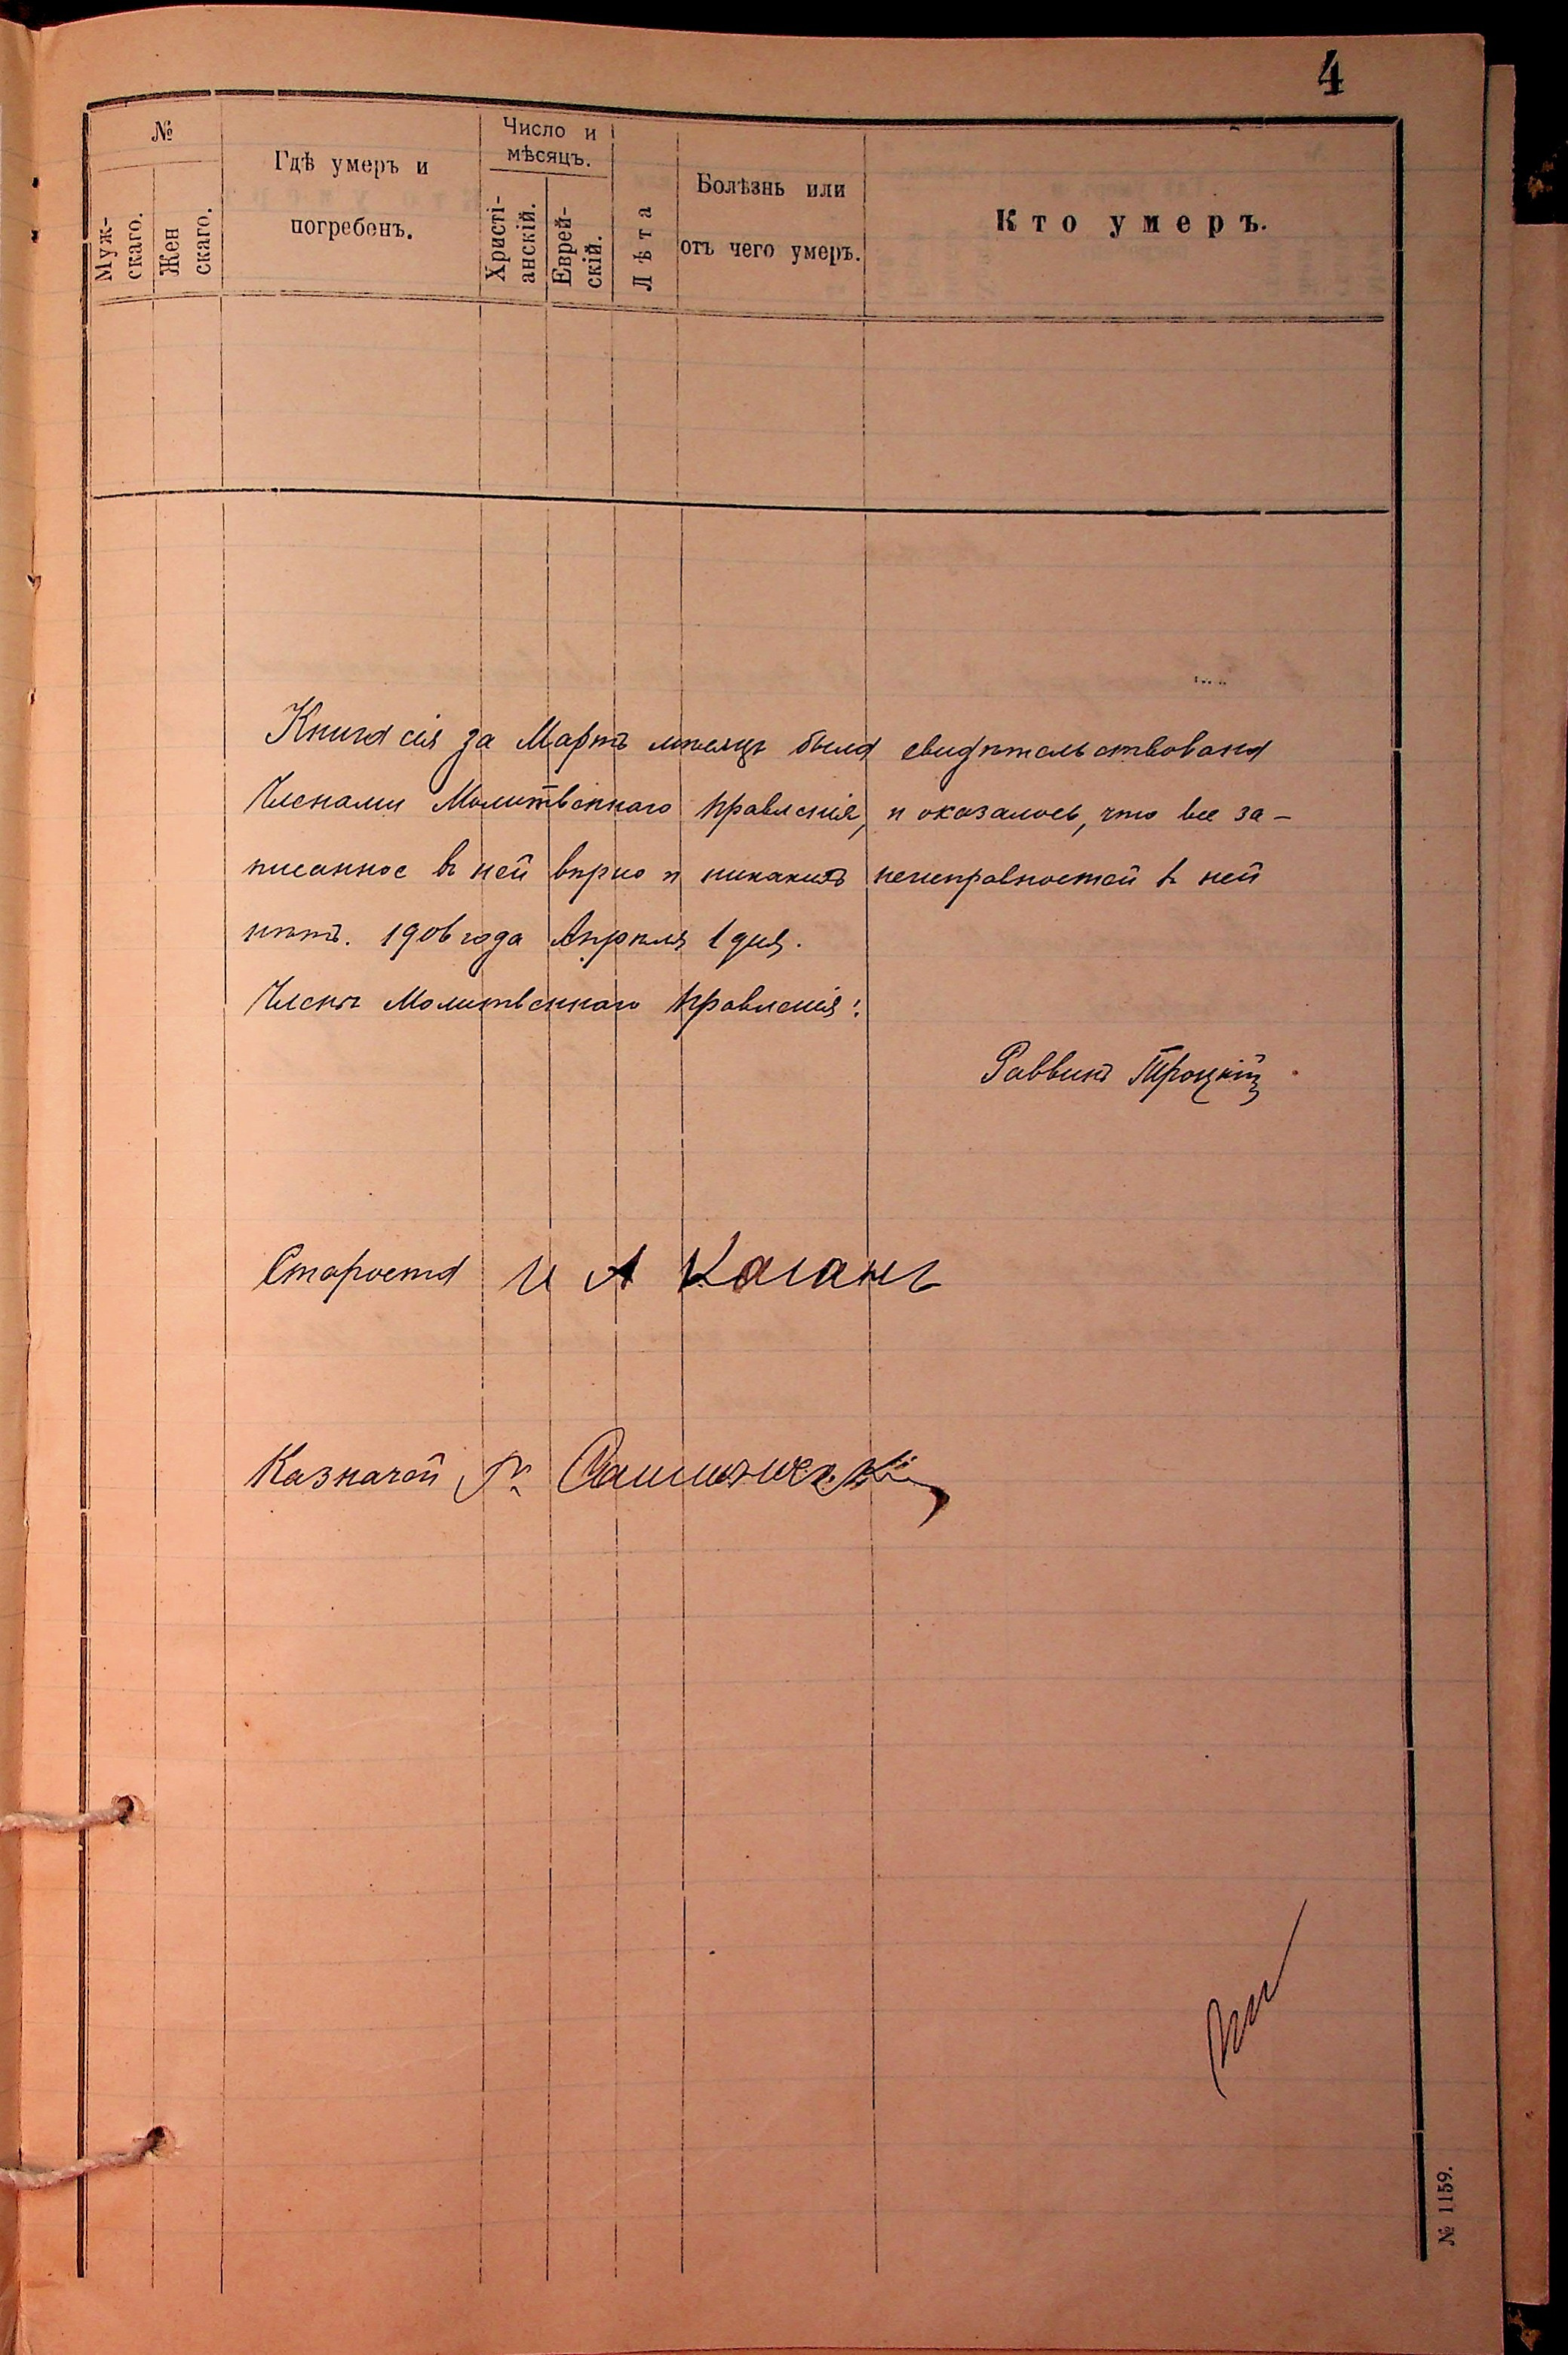 4
№
Муж-
скаго.
Жен
скаго.
Гдѣ умеръ и
погребенъ.
Число и
мѣсяцъ.
Христі-
анскій.
Еврей-
скій.
Лѣта
Болѣзнь или
отъ чего умеръ.
Кто умеръ.
Книга сія за Мартъ мѣсяцъ была свидѣтельствована
Членами Молитвеннаго правленія, и оказалось, что все за-
писанное въ ней вѣрно и никакихъ неисправностей въ ней
нѣтъ. 1906 года Апрѣля 1 дня.
Члены Молитвеннаго правленія:
Раввинъ Троцкій
Староста И А Каганъ
Казначей
№ 1159.